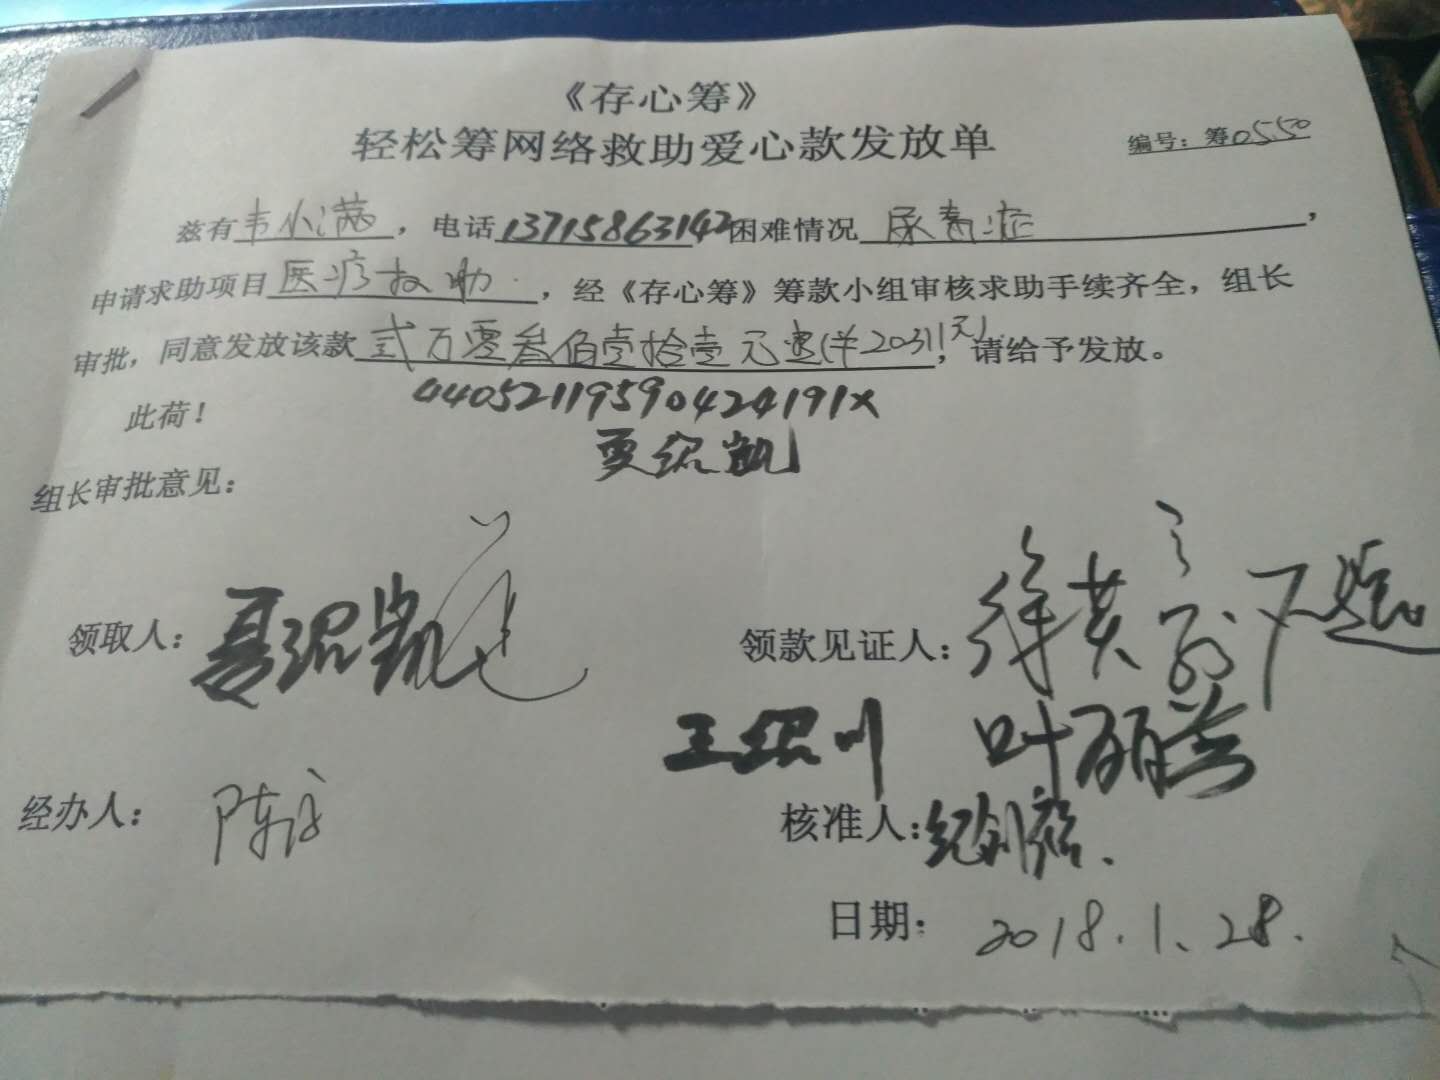 《存心筹》
轻松筹网络救助爱心款发放单
编号：筹0550
兹有韦小满，电话13715863142困难情况尿毒症，
申请求助项目医疗救助，经《存心筹》筹款小组审核求助手续齐全，组长
审批，同意发放该款贰万零叁佰壹拾壹元 (￥20311元)，请给予发放。
此荷！
44052119590424191X
绍凯
组长审批意见：
领取人：绍凯
领款见证人：徐英
王绍川 叶丽
经办人：陈
核准人：纪剑
日期：2018.1.28.